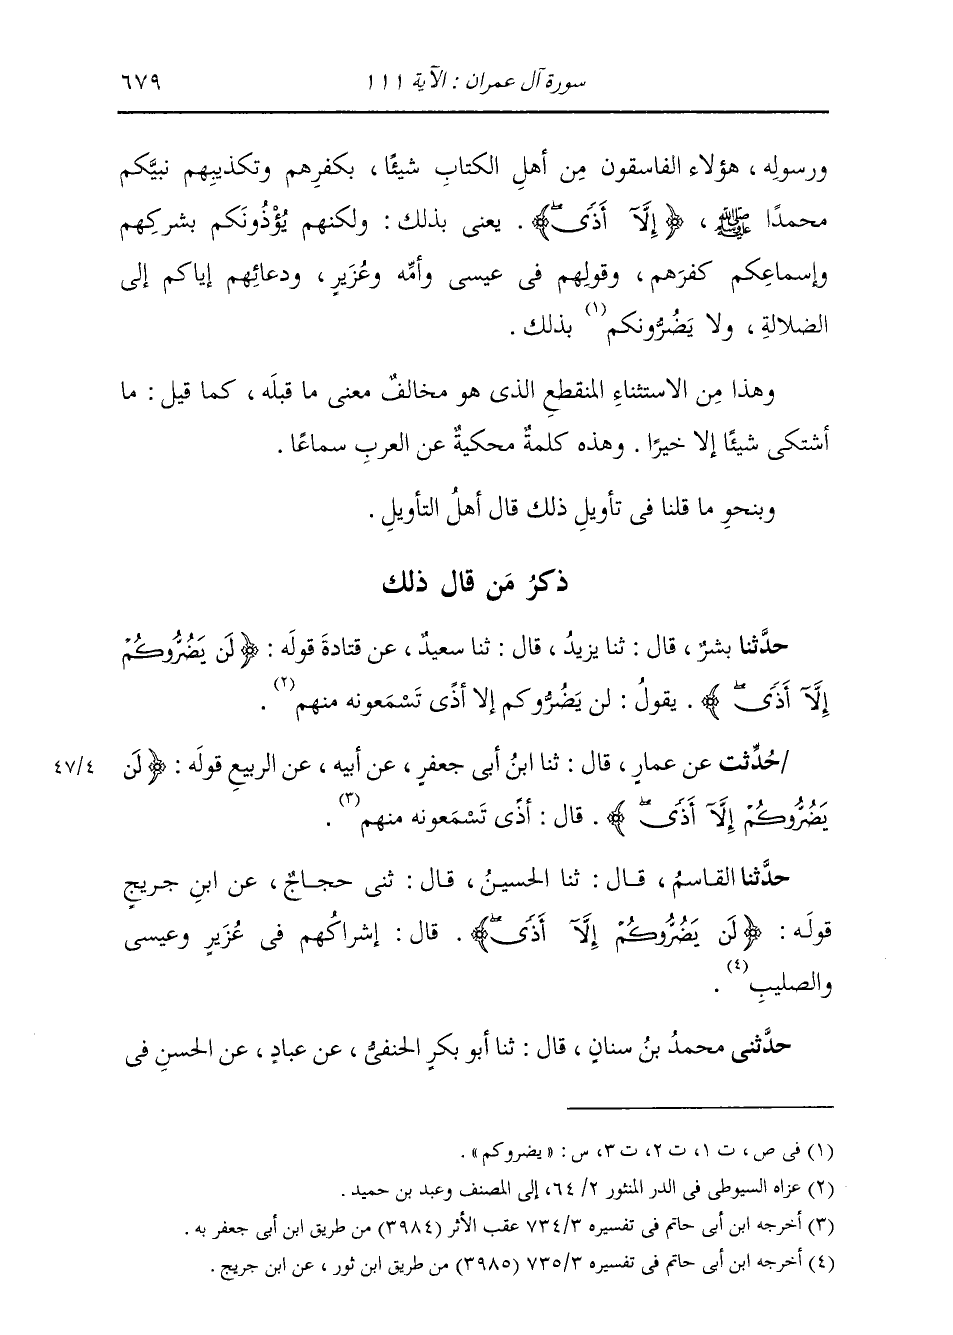 سورة آل عمران : الآية ١١١ ٦٧٩
ورسولِه ، هؤلاء الفاسقون مِن أهلِ الكتابِ شيئًا ، بكفرِهم وتكذيبِهم نبيَّكم
محمدًا ﷺ ، ﴿ إِلَّآ أَذًىۖ ﴾ . يعنى بذلك : ولكنهم يُؤْذُونَكم بشركِهم
وإسماعِكم كفرَهم ، وقولِهم فى عيسى وأمِّه وعُزَيرٍ ، ودعائِهم إياكم إلى
الضلالةِ ، ولا يَضُرُّونكم(١) بذلك .
وهذا مِن الاستثناءِ المنقطعِ الذى هو مخالفٌ معنى ما قبلَه ، كما قيل : ما
أشتكى شيئًا إلا خيرًا . وهذه كلمةٌ محكيةٌ عن العربِ سماعًا .
وبنحوِ ما قلنا فى تأويلِ ذلك قال أهلُ التأويلِ .
ذكرُ مَن قال ذلك
حدَّثنا بشرٌ ، قال : ثنا يزيدُ ، قال : ثنا سعيدٌ ، عن قتادةَ قولَه : ﴿ لَن يَضُرُّوكُمْ
إِلَّآ أَذًىۖ ﴾ . يقولُ : لن يَضُرُّوكم إلا أذًى تَسْمَعونه منهم(٢) .
/حُدِّثت عن عمارٍ ، قال : ثنا ابنُ أبى جعفرٍ ، عن أبيه ، عن الربيعِ قولَه : ﴿ لَن ٤٧/٤
يَضُرُّوكُمْ إِلَّآ أَذًىۖ ﴾ . قال : أذًى تَسْمَعونه منهم(٣) .
حدَّثنا القاسمُ ، قال : ثنا الحسينُ ، قال : ثنى حجاجٌ ، عن ابنِ جريجٍ
قولَه : ﴿ لَن يَضُرُّوكُمْ إِلَّآ أَذًىۖ ﴾ . قال : إشراكُهم فى عُزَيرٍ وعيسى
والصليبِ(٤) .
حدَّثنى محمدُ بنُ سنانٍ ، قال : ثنا أبو بكرٍ الحنفىُّ ، عن عبادٍ ، عن الحسنِ فى
(١) فى ص ، ت ١، ت ٢، ت ٣، س : «يضروكم» .
(٢) عزاه السيوطى فى الدر المنثور ٢/ ٦٤، إلى المصنف وعبد بن حميد .
(٣) أخرجه ابن أبى حاتم فى تفسيره ٧٣٤/٣ عقب الأثر (٣٩٨٤) من طريق ابن أبى جعفر به .
(٤) أخرجه ابن أبى حاتم فى تفسيره ٧٣٥/٣ (٣٩٨٥) من طريق ابن ثور ، عن ابن جريج .